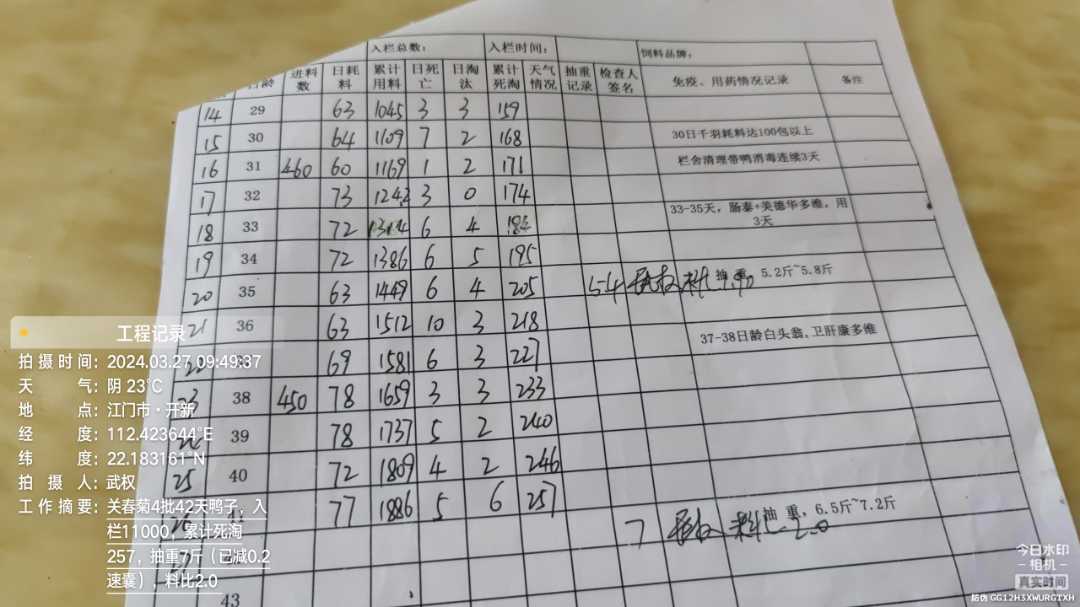 入栏总数： 入栏时间： 饲料品牌：
日龄 进料数 日耗料 累计用料 日死亡 日淘汰 累计死淘 天气情况 抽重记录 检查人签名 免疫、用药情况记录 备注
14 29 63 1045 3 3 159
15 30 64 1109 7 2 168 30日千羽耗料达100包以上
16 31 460 60 1169 1 2 171 栏舍清理带鸭消毒连续3天
17 32 73 1242 3 0 174
18 33 72 1314 6 4 184 33-35天，肠泰+美德华多维，用3天
19 34 72 1386 6 5 195
20 35 63 1449 6 4 205 5.4 武权 料比 1.90 抽重，5.2斤~5.8斤
21 36 63 1512 10 3 218
69 1581 6 3 227 37-38日龄白头翁、卫肝康多维
23 38 450 78 1659 3 3 233
39 78 1737 5 2 240
25 40 72 1809 4 2 246
77 1886 5 6 257
7 武权 料比 2.0 抽重，6.5斤~7.2斤
43
工程记录
拍摄时间：2024.03.27 09:49:37
天气：阴 23℃
地点：江门市·开新
经度：112.423644°E
纬度：22.183161°N
拍摄人：武权
工作摘要：关春菊4批42天鸭子，入
栏11000，累计死淘
257，抽重7斤（已减0.2
速囊）、料比2.0
今日水印
-相机-
真实时间
防伪 GG12H3XWURGTXH